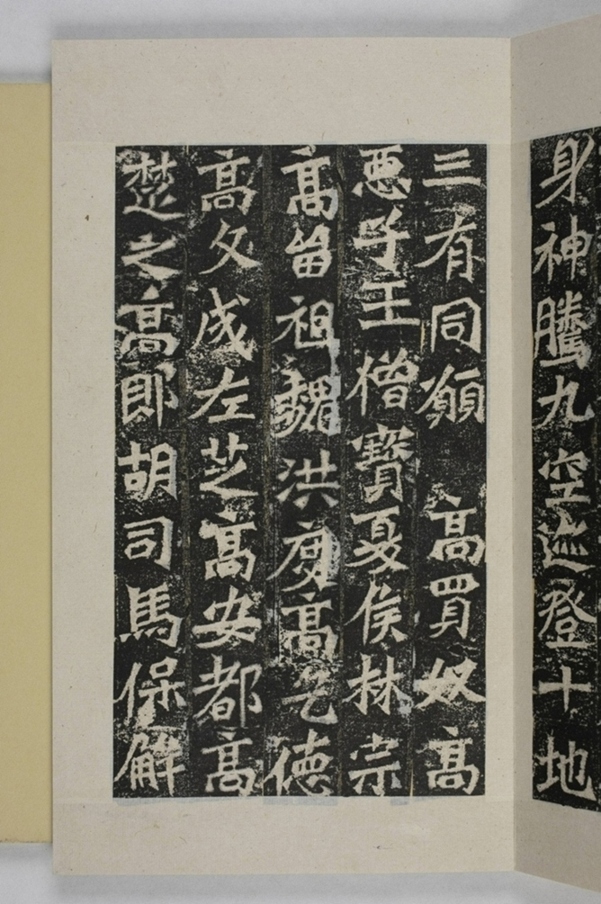 身神騰九空迹登十地
三有同願 高買奴高
惡子王僧寶夏侯林宗
高留祖魏洪度高乞德
高文成左芝高安都高
楚之高郎胡司馬保解